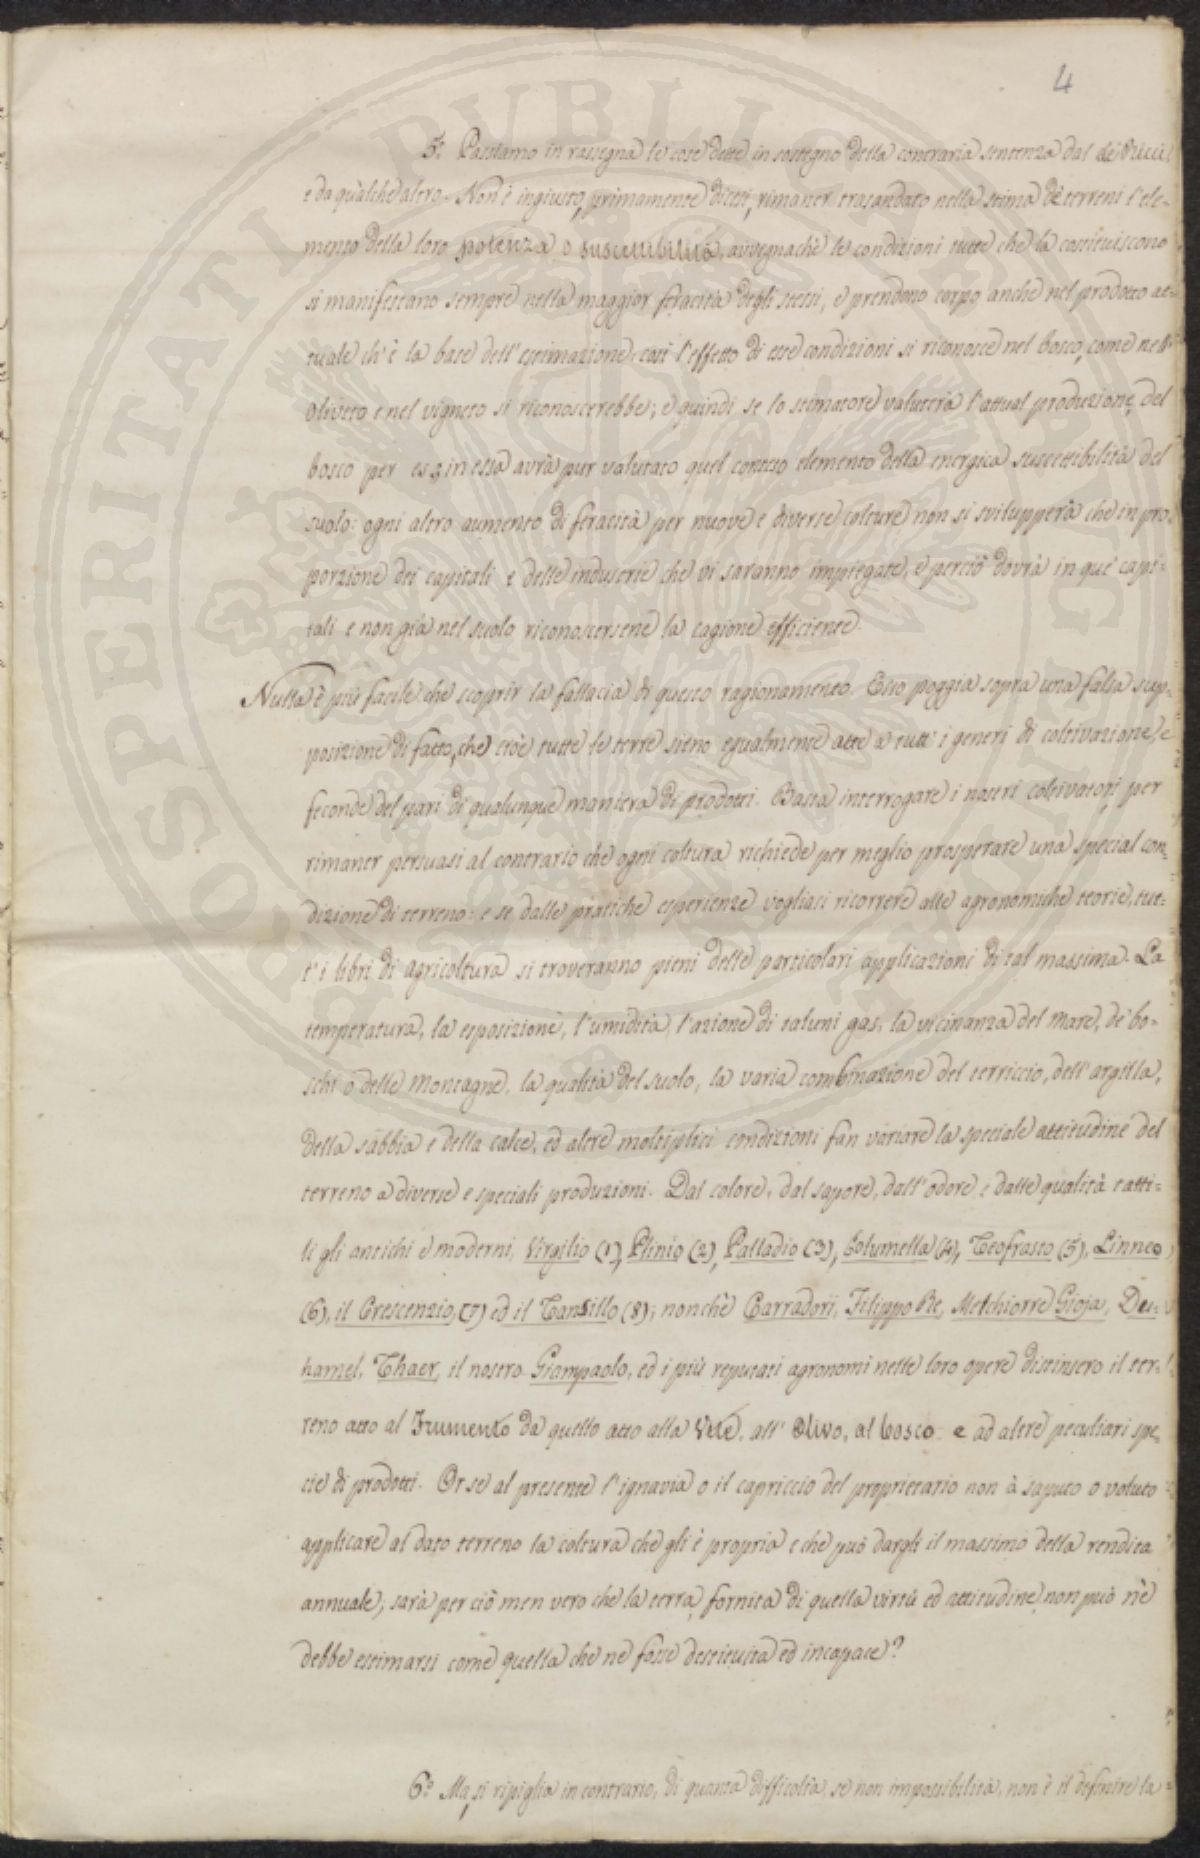 4
5.º Passiamo in rassegna le cose dette in sostegno della contraria sentenza dal de
e da qualche altro. Non è ingiusto, primamente dicesi, rimaner trasandato nella stima de' terreni l'ele-
mento della loro potenza o suscettibilità, avvegnachè le condizioni tutte che la costituiscono
si manifestano sempre nella maggior feracità degli stessi, e prendono corpo anche nel prodotto at-
tuale ch'è la base dell'estimazione: così l'effetto di esse condizioni si riconosce nel bosco, come nell'
oliveto e nel vigneto si riconoscerebbe; e quindi se lo stimatore valuterà l'attual produzione del
bosco per essa in essa avrà pur valutato quel conteso elemento della energica suscettibilità del
suolo: ogni altro aumento di feracità per nuove e diverse colture non si svilupperà che in pro-
porzione dei capitali e delle industrie che vi saranno impiegate, e perciò dovrà in que' capi-
tali e non già nel suolo riconoscersene la cagione efficiente.
Nulla è più facile che scoprir la fallacia di questo ragionamento. Esso poggia sopra una falsa sup-
posizione di fatto, che cioè tutte le terre sieno egualmente atte a tutt' i generi di coltivazione, e
feconde del pari di qualunque maniera di prodotti. Basta interrogare i nostri coltivatori per
rimaner persuasi al contrario che ogni coltura richiede per meglio prosperare una special con-
dizione di terreno: e se dalle pratiche esperienze vogliasi ricorrere alle agronomiche teorie, tut-
t' i libri di agricoltura si troveranno pieni delle particolari applicazioni di tal massima. La
temperatura, la esposizione, l'umidità, l'azione di taluni gas, la vicinanza del mare, de' bo-
schi o delle montagne, la qualità del suolo, la varia combinazione del terriccio, dell'argilla,
della sabbia e della calce, ed altre moltiplici condizioni fan variare la speciale attitudine del
terreno a diverse e speciali produzioni. Dal colore, dal sapore, dall'odore e dalle qualità tatti-
li gli antichi e moderni, Virgilio (1), Plinio (2), Palladio (3), Columella (4), Teofrasto (5), Linneo
(6), il Crescenzio, (7) ed il Tansillo (8); nonchè Carradori, Filippo Re, Melchiorre Gioja, Du-
hamel, Thaer, il nostro Giampaolo, ed i più reputati agronomi nelle loro opere distinsero il ter-
reno atto al Frumento da quello atto alla Vite, all' Olivo, al bosco: e ad altre peculiari spe-
cie di prodotti. Or se al presente l'ignavia o il capriccio del proprietario non à saputo o voluto
applicare al dato terreno la coltura che gli è propria e che può dargli il massimo della rendita
annuale; sarà per ciò men vero che la terra fornita di quella virtù ed attitudine non può nè
debbe estimarsi come quella che ne fosse destituita ed incapace?
6.º Ma, si ripiglia in contrario, di quanta difficoltà, se non impossibilità, non è il definire la